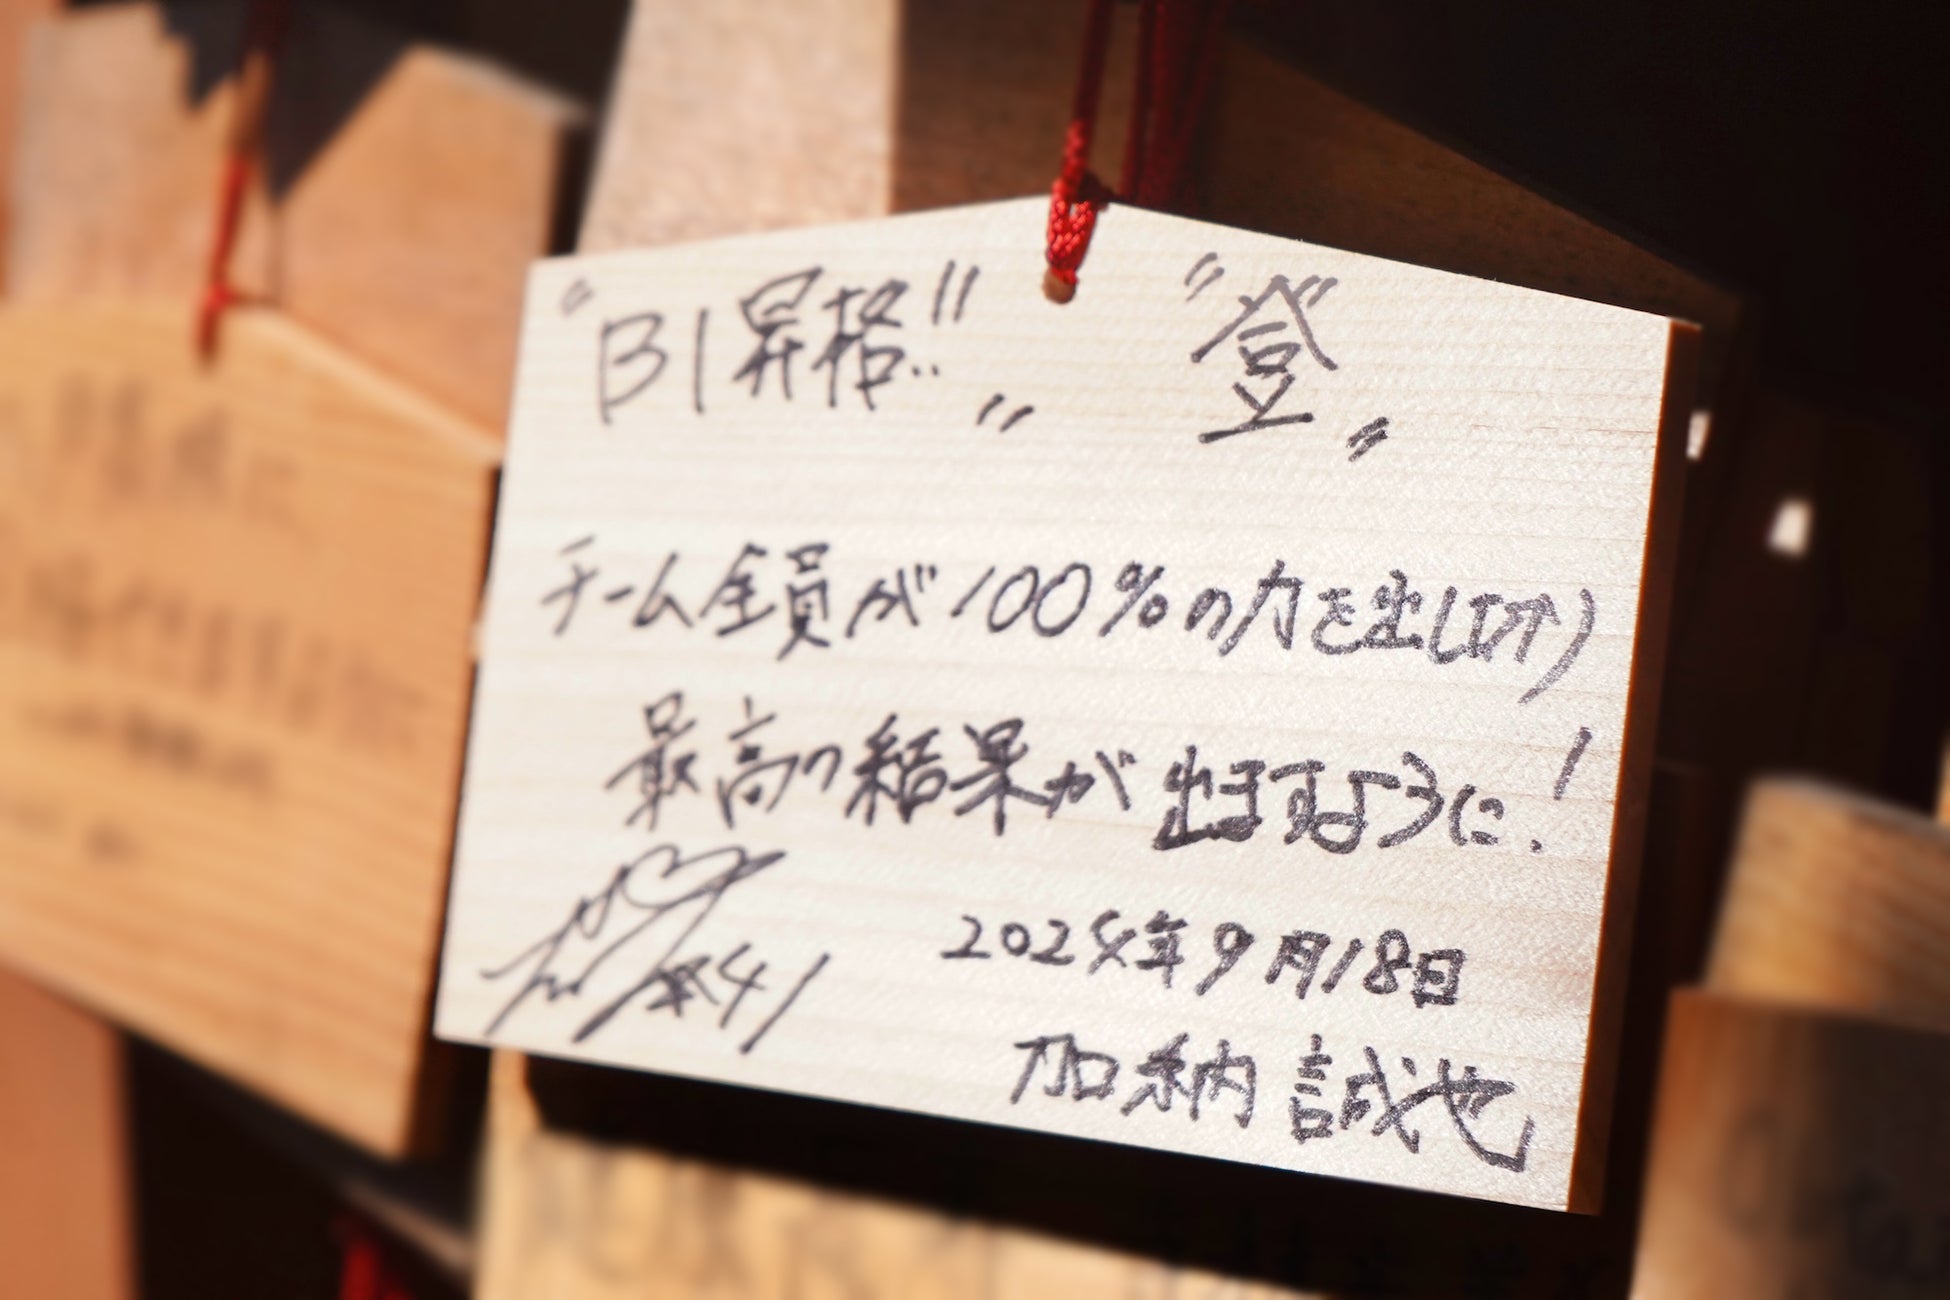 "B1昇格!!" "登"
チーム全員が100%の力を出し切り
最高の結果が出ますように!
#41
2024年9月18日
加納 誠也